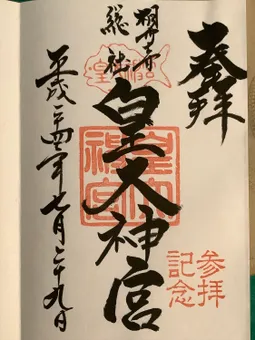 奉拝
参拝
記念
総社
皇大神宮
皇大
神宮
平成二四年七月二十九日